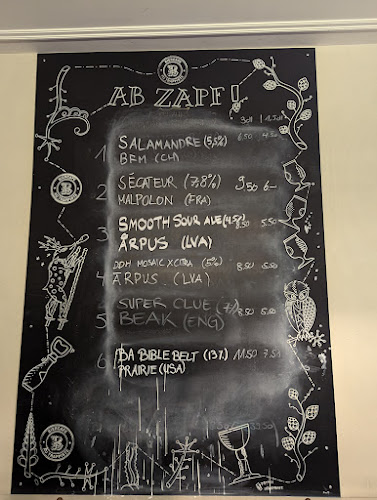 AB ZAPF!
1 SALAMANDRE (5,5%) 6.50 4.50
BFM (CH)
2 SÉCATEUR (7,8%) 9.50 6.-
MALPOLON (FRA)
3 SMOOTH SOUR ALE (4,5%) 8.50 5.50
ĀRPUS (LVA)
DDH MOSAIC X CITRA (5%) 8.50 5.50
4 ĀRPUS (LVA)
SUPER CLUE (7%) 8.50 5.50
5 BEAK (ENG)
6 BA BIBLE BELT (13%) 11.50 7.50
PRAIRIE (USA)